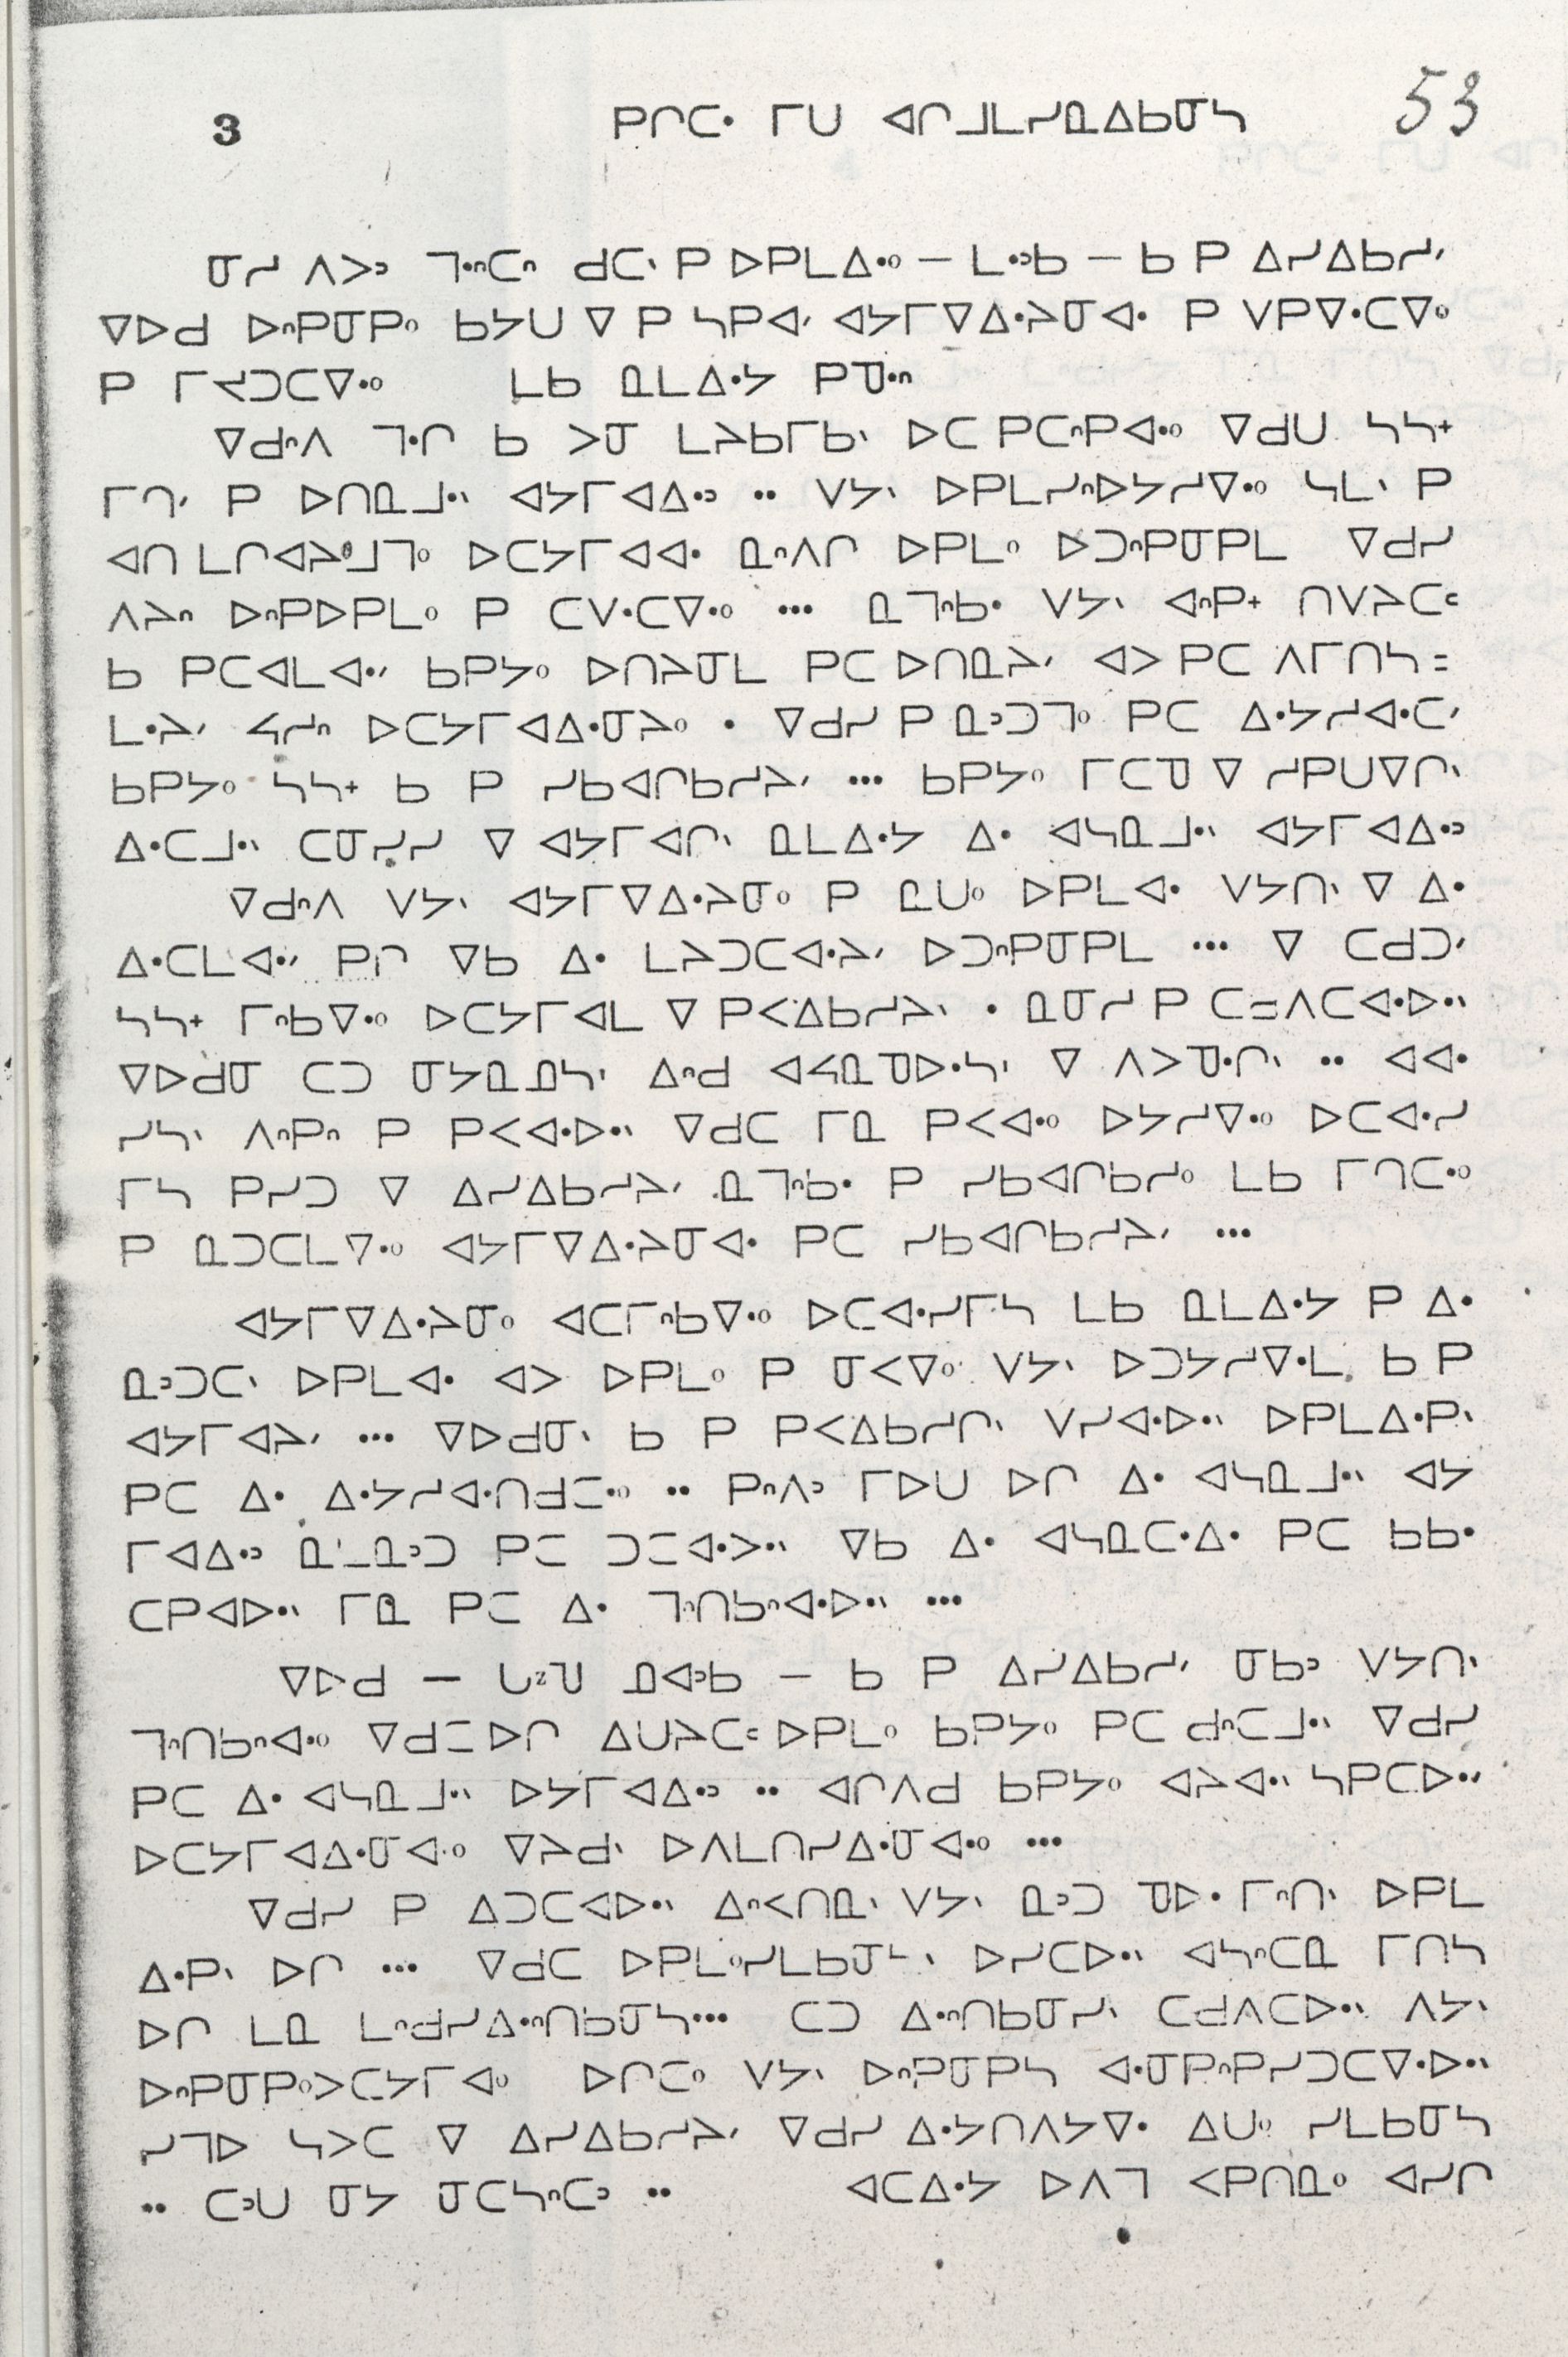 3 ᑭᒋᑕᐧ ᒥᑌ ᐊᒋᒧᒪᓯᓇᐃᑲᓂᓴ 53
ᓂᓯ ᐱᐳᐣ ᒣᐧᐢᑕᐢ ᑯᑕᐠ ᑭ ᐅᑭᒪᐃᐧᐤ — ᒪᐧᐣᑲ — ᑲ ᑭ ᐃᓯᐃᑲᓯᐟ
ᐁᐅᑯ ᐅᐢᑭᓂᑭᐤ ᑲᔭᑌ ᐁ ᑭ ᓴᑭᐊᐟ ᐊᔭᒥᐁᐃᐧᔨᓂᐊᐧ ᑭ ᐯᑭᐁᐧᑕᐁᐤ
ᑭ ᒥᔪᑐᑕᐁᐧᐤ ᒪᑲ ᓇᒪᐃᐧᔭ ᑭᓀᐧᐢ
ᐁᑯᐢᐱ ᒣᐧᒋ ᑲ ᐳᓂ ᒪᔨᑲᒥᑲᐠ ᐅᑕ ᑭᑕᐢᑭᐊᐧᐤ ᐁᑯᑌ ᓴᓴᕀ
ᒥᒉᐟ ᑭ ᐅᑎᓇᒧᐧᐠ ᐊᔭᒥᐊᐃᐧᐣ ᐯᔭᐠ ᐅᑭᒪᓯᐢᐅᔭᓯᐁᐧᐤ ᓴᒪᐠ ᑭ
ᐊᑎ ᒪᒋᐊᔨᒧᒣᐤ ᐅᑕᔭᒥᐊᐊᐧ ᓇᐢᐱᒋ ᐅᑭᒪᐤ ᐅᑐᐢᑭᓂᑭᒪ ᐁᑯᓯ
ᐱᔨᐢ ᐅᐢᑭᐅᑭᒪᐤ ᑭ ᑕᐯᐧᑕᐁᐧᐤ ᓇᒣᐢᑲᐧ ᐯᔭᐠ ᐊᐢᑭᕀ ᑎᐯᔨᑕᒼ
ᑲ ᑭᑕᐊᒪᐊᐧᐟ ᑲᑭᔭᐤ ᐅᑎᔨᓂᒪ ᑭᑕ ᐅᑎᓇᔨᐟ ᐊᐳ ᑭᑕ ᐱᒥᑎᓴ =
ᒪᐧᔨᐟ ᓭᓯᐢ ᐅᑕᔭᒥᐊᐃᐧᓂᔨᐤ • ᐁᑯᓯ ᑭ ᓇᐣᑐᒣᐤ ᑭᑕ ᐃᐧᔭᓯᐊᐧᑕᐟ
ᑲᑭᔭᐤ ᓴᓴᕀ ᑲ ᑭ ᓯᑲᐊᒋᑲᓯᔨᐟ ••• ᑲᑭᔭᐤ ᒥᑕᓀ ᐁ ᓯᑭᑌᐁᒋᐠ
ᐃᐧᑕᒧᐧᐠ ᑕᓂᓯᓯ ᐁ ᐊᔭᒥᐊᒋᐠ ᓇᒪᐃᐧᔭ ᐃᐧ ᐊᓴᓇᒧᐧᐠ ᐊᔭᒥᐊᐃᐧᐣ
ᐁᑯᐢᐱ ᐯᔭᐠ ᐊᔭᒥᐁᐃᐧᔨᓂᐤ ᑭ ᓇᑌᐤ ᐅᑭᒪᐊᐧ ᐯᔭᑎᐠ ᐁ ᐃᐧ
ᐃᐧᑕᒪᐊᐧᐟ ᑭᒋ ᐁᑲ ᐃᐧ ᒪᔨᑐᑕᐊᐧᔨᐟ ᐅᑐᐢᑭᓂᑭᒪ ••• ᐁ ᑕᑯᑐᐟ
ᓴᓴᕀ ᒥᐢᑲᐁᐧᐤ ᐅᑕᔭᒥᐊᒪ ᐁ ᑭᐸᐃᑲᓯᔨᐠ • ᓇᓂᓯ ᑭ ᑕᓯᐱᑕᐊᐧᐅᐧᐠ
ᐁᐅᑯᓂ ᑕᑐ ᓂᔭᓇᓄᓴᐠ ᐃᐢᑯ ᐊᔦᓇᓀᐅᐧᓴᐠ ᐁ ᐱᐳᓀᐧᒋᐠ •• ᐊᐊᐧ
ᓯᓴᐠ ᐱᐢᑭᐢ ᑭ ᑭᐸᐊᐧᐅᐧᐠ ᐁᑯᑕ ᒥᓇ ᑭᐸᐊᐧᐤ ᐅᔭᓯᐁᐧᐤ ᐅᑕᐊᐧᓯ
ᒥᓴ ᑭᓯᑐ ᐁ ᐃᓯᐃᑲᓯᔨᐟ ᓇᒣᐢᑲᐧ ᑭ ᓯᑲᐊᒋᑲᓯᐤ ᒪᑲ ᒥᒉᑕᐧᐤ
ᑭ ᓇᑐᑕᒪᐁᐧᐤ ᐊᔭᒥᐁᐃᐧᔨᓂᐊᐧ ᑭᑕ ᓯᑲᐊᒋᑲᓯᔨᐟ •••
ᐊᔭᒥᐁᐃᐧᔨᓂᐤ ᐊᑕᒥᐢᑲᐁᐧᐤ ᐅᑕᐊᐧᓯᒥᓴ ᒪᑲ ᓇᒪᐃᐧᔭ ᑭ ᐃᐧ
ᓇᐣᑐᑕᐠ ᐅᑭᒪᐊᐧ ᐊᐳ ᐅᑭᒪᐤ ᑭ ᓂᐸᐁᐤ ᐯᔭᐠ ᐅᑐᔭᓯᐁᐧᒪ ᑲ ᑭ
ᐊᔭᒥᐊᔨᐟ ••• ᐁᐅᑯᓂᐠ ᑲ ᑭ ᑭᐸᐃᑲᓯᒋᐠ ᐯᓯᐊᐧᐅᐧᐠ ᐅᑭᒪᐃᐧᑭᐠ
ᑭᑕ ᐃᐧ ᐃᐧᔭᓯᐊᐧᑎᑯᑕᐧᐤ •• ᑭᐢᐱᐣ ᒥᐅᑌ ᐅᒋ ᐃᐧ ᐊᓴᓇᒧᐧᐠ ᐊᔭ
ᒥᐊᐃᐧᐣ ᓇᓇᐣᑐ ᑭᑕ ᑐᑕᐊᐧᐳᐧᐠ ᐁᑲ ᐃᐧ ᐊᓴᓇᑕᐧᐃᐧ ᑭᑕ ᑲᑲᐧ
ᑕᑭᐊᐅᐧᐠ ᒥᓇ ᑭᑕ ᐃᐧ ᒣᐢᑎᑲᐢᐊᐧᐅᐧᐠ •••
ᐁᐅᑯ — ᓓᓀ ᓄᐊᐧᐣᑲ — ᑲ ᑭ ᐃᓯᐃᑲᓯᐟ ᓂᑲᐣ ᐯᔭᑎᐠ
ᒣᐢᑎᑲᐢᐊᐧᐤ ᐁᑯᑕ ᐅᒋ ᐃᑌᔨᑕᒼ ᐅᑭᒪᐤ ᑲᑭᔭᐤ ᑭᑕ ᑯᐢᑕᒧᐧᐠ ᐁᑯᓯ
ᑭᑕ ᐃᐧ ᐊᓴᓇᒧᐧᐠ ᐅᔭᒥᐊᐃᐧᐣ •• ᐊᒋᐱᑯ ᑲᑭᔭᐤ ᐊᔨᐊᐧᐠ ᓴᑭᑕᐅᐧᐠ
ᐅᑕᔭᒥᐊᐃᐧᓂᐊᐧᐤ ᐁᔨᑯᐠ ᐅᐱᒪᑎᓯᐃᐧᓂᐊᐧᐤ •••
ᐁᑯᓯ ᑭ ᐃᑐᑕᐊᐅᐧᐠ ᐃᐢᐸᑎᓇᐠ ᐯᔭᐠ ᓇᐣᑐ ᓀᐅᐧ ᒥᐢᑎᐠ ᐅᑭᒪ
ᐃᐧᑭᐠ ᐅᒋ ••• ᐁᑯᑕ ᐅᑭᒪᐤᓯᒪᑲᓂᓴᐠ ᐅᓯᑕᐅᐧᐠ ᐊᓴᐢᑕᓇ ᒥᑎᓴ
ᐅᒋ ᒪᓇ ᒪᐢᑯᓯᐃᐧᐢᑎᑲᓂᓴ••• ᑕᑐ ᐃᐧᐢᑎᑲᓂᓯᐠ ᑕᑯᐱᑕᐅᐧᐠ ᐱᔭᐠ
ᐅᐢᑭᓂᑭᐤᐳᑕᔭᒥᐊᐤ ᐅᒋᑕᐤ ᐯᔭᐠ ᐅᐢᑭᓂᑭᓴ ᐊᐧᓂᑭᐢᑭᓯᑐᑕᐁᐧᐅᐧᐠ
ᓯᒣᐅ ᓴᐳᑕ ᐁ ᐃᓯᐃᑲᓯᔨᐟ ᐁᑯᓯ ᐃᐧᔭᑎᐱᔭᐁᐧ ᐃᑌᐤ ᓯᒪᑲᓂᓴ
•• ᑕᐣᑌ ᓂᔭ ᓂᑕᓴᐢᑕᐣ •• ᐊᑕᐃᐧᔭ ᐅᐱᒣ ᐸᑭᑎᓇᐤ ᐊᓯᒋ